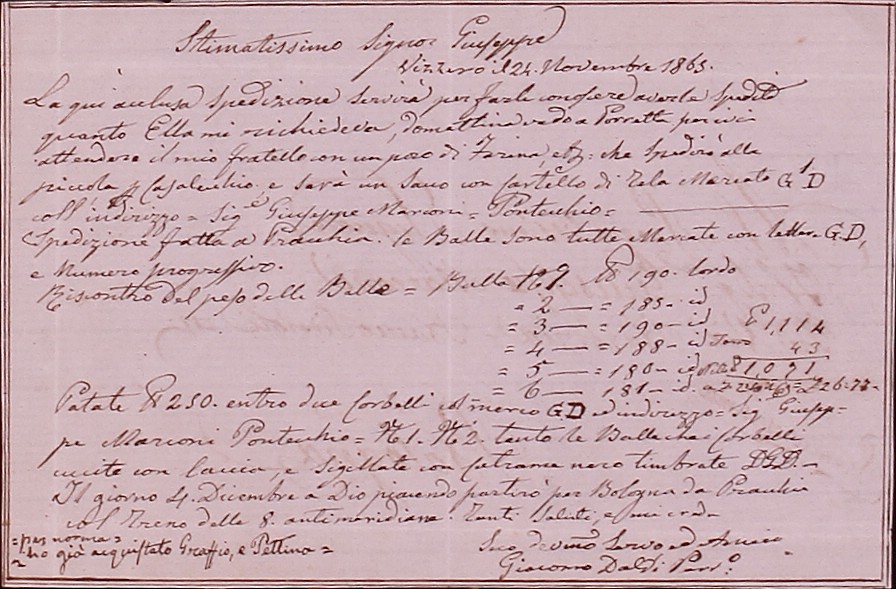 Stimatissimo Signor Giuseppe
Vizzero il 24. Novembre 1865.
La quì acclusa spedizione servirà per farle conoscere averle spedito
quanto Ella mi richiedeva, domattina vado a Porratta per ivi
attendere il mio fratello con un poco di Farina, che spedirò alla
piccola Casalecchio e sarà un Sacco con Cartello di Tela Marcato G 1 D
coll'indirizzo = Sig.e Giuseppe Marconi = Pontecchio =
Spedizione fatta a Pracchia. le Balle sono tutte Marcate con lettere G.D,
e Numero progressivo.
Riscontro del peso delle Balle = Balla N. 1. 190. lordo
= 2 — = 185 - id
= 3 — = 190 - id 1,114
= 4 — = 188 - id Tara 43
= 5 — = 180 - id 1,071
= 6 — 181 - id.
Patate 250. entro due Corbelli col marco G.D ed indirizzo = Sig. Giusep=
pe Marconi Pontecchio = N. 1. N. 2. tanto le Balla che i Corbelli
uscite con laccio, e Sigillate con Catrame nero timbrate D.G.D. -
Il giorno 4. Dicembre a Dio piacendo partirò per Bologna da Pracchia
col Treno delle 8. antimeridiane. Tanti Saluti, e mi creda
=per norma=
= ho già acquistato Graffio, e Pettine =
Suo devmo Servo ed Amico
Giacomo Daldi